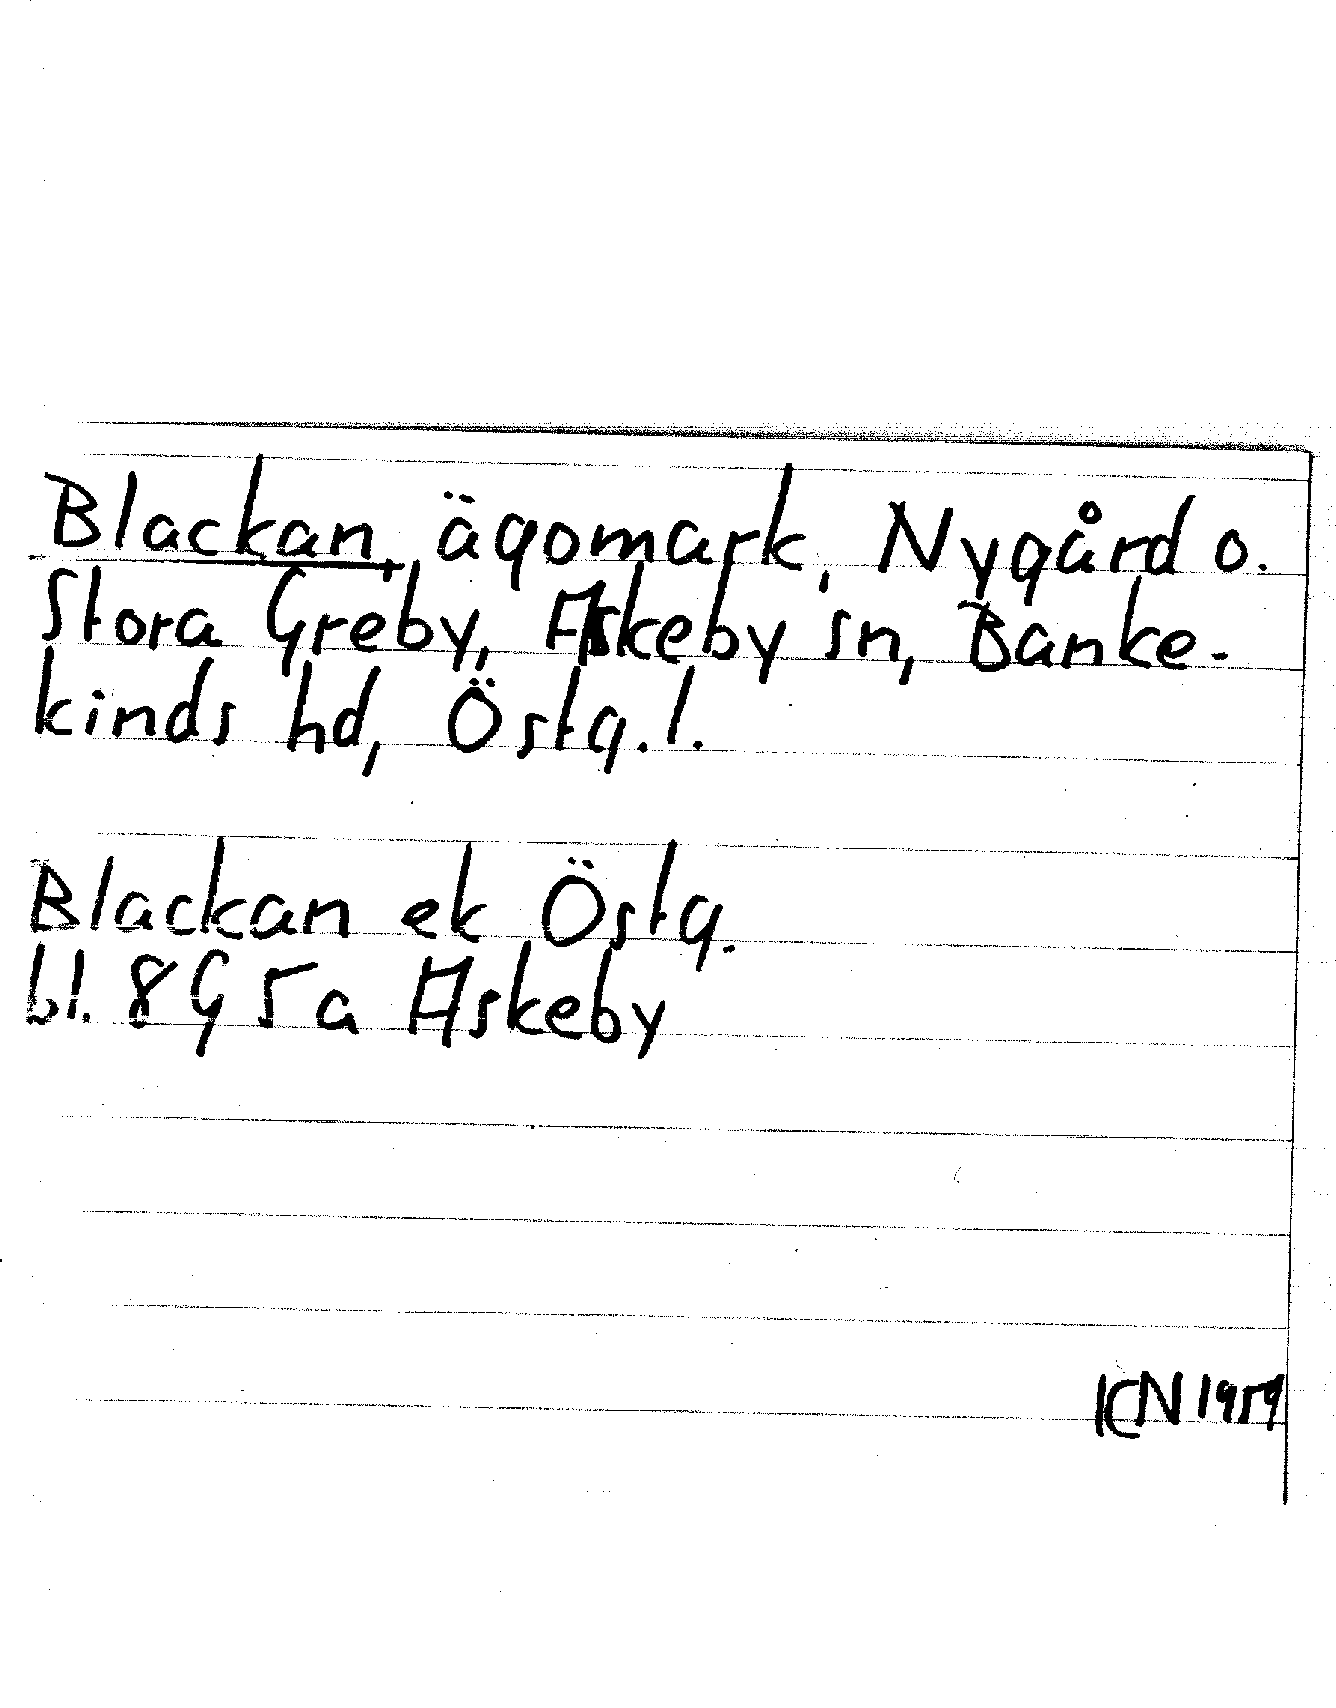 Blackan, ägomark, Nygård o.
Stora Greby, Askeby sn, Banke-
kinds hd, Östg. l.
Blackan ek Östg.
bl. 8G 5a Askeby
KN 1959